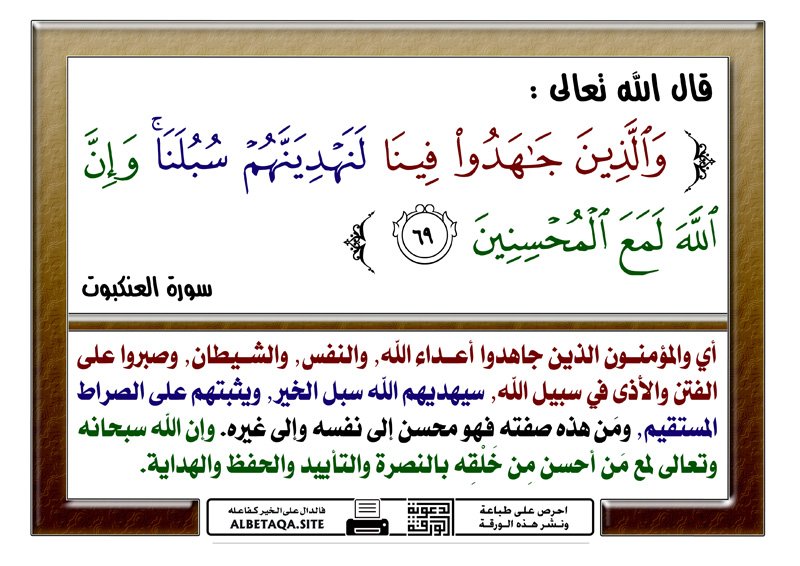 قال الله تعالى :
﴿ وَٱلَّذِينَ جَٰهَدُوا۟ فِينَا لَنَهْدِيَنَّهُمْ سُبُلَنَا ۚ وَإِنَّ
ٱللَّهَ لَمَعَ ٱلْمُحْسِنِينَ ٦٩ ﴾
سورة العنكبوت
أي والمؤمنــون الذين جاهدوا أعـداء الله, والنفس, والشـيطان, وصبروا على
الفتن والأذى في سبيل الله, سيهديهم الله سبل الخير, ويثبتهم على الصراط
المستقيم, ومَن هذه صفته فهو محسن إلى نفسه وإلى غيره. وإن الله سبحانه
وتعالى لمع مَن أحسن مِن خَلْقِه بالنصرة والتأييد والحفظ والهداية.
احرص على طباعة
ونشر هذه الورقة
الدعوية
الورقة
فالدال على الخير كفاعله
ALBETAQA.SITE